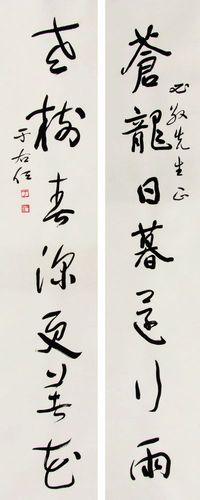 蒼龍日暮還行雨
必敬先生正
老樹春深更著花
于右任